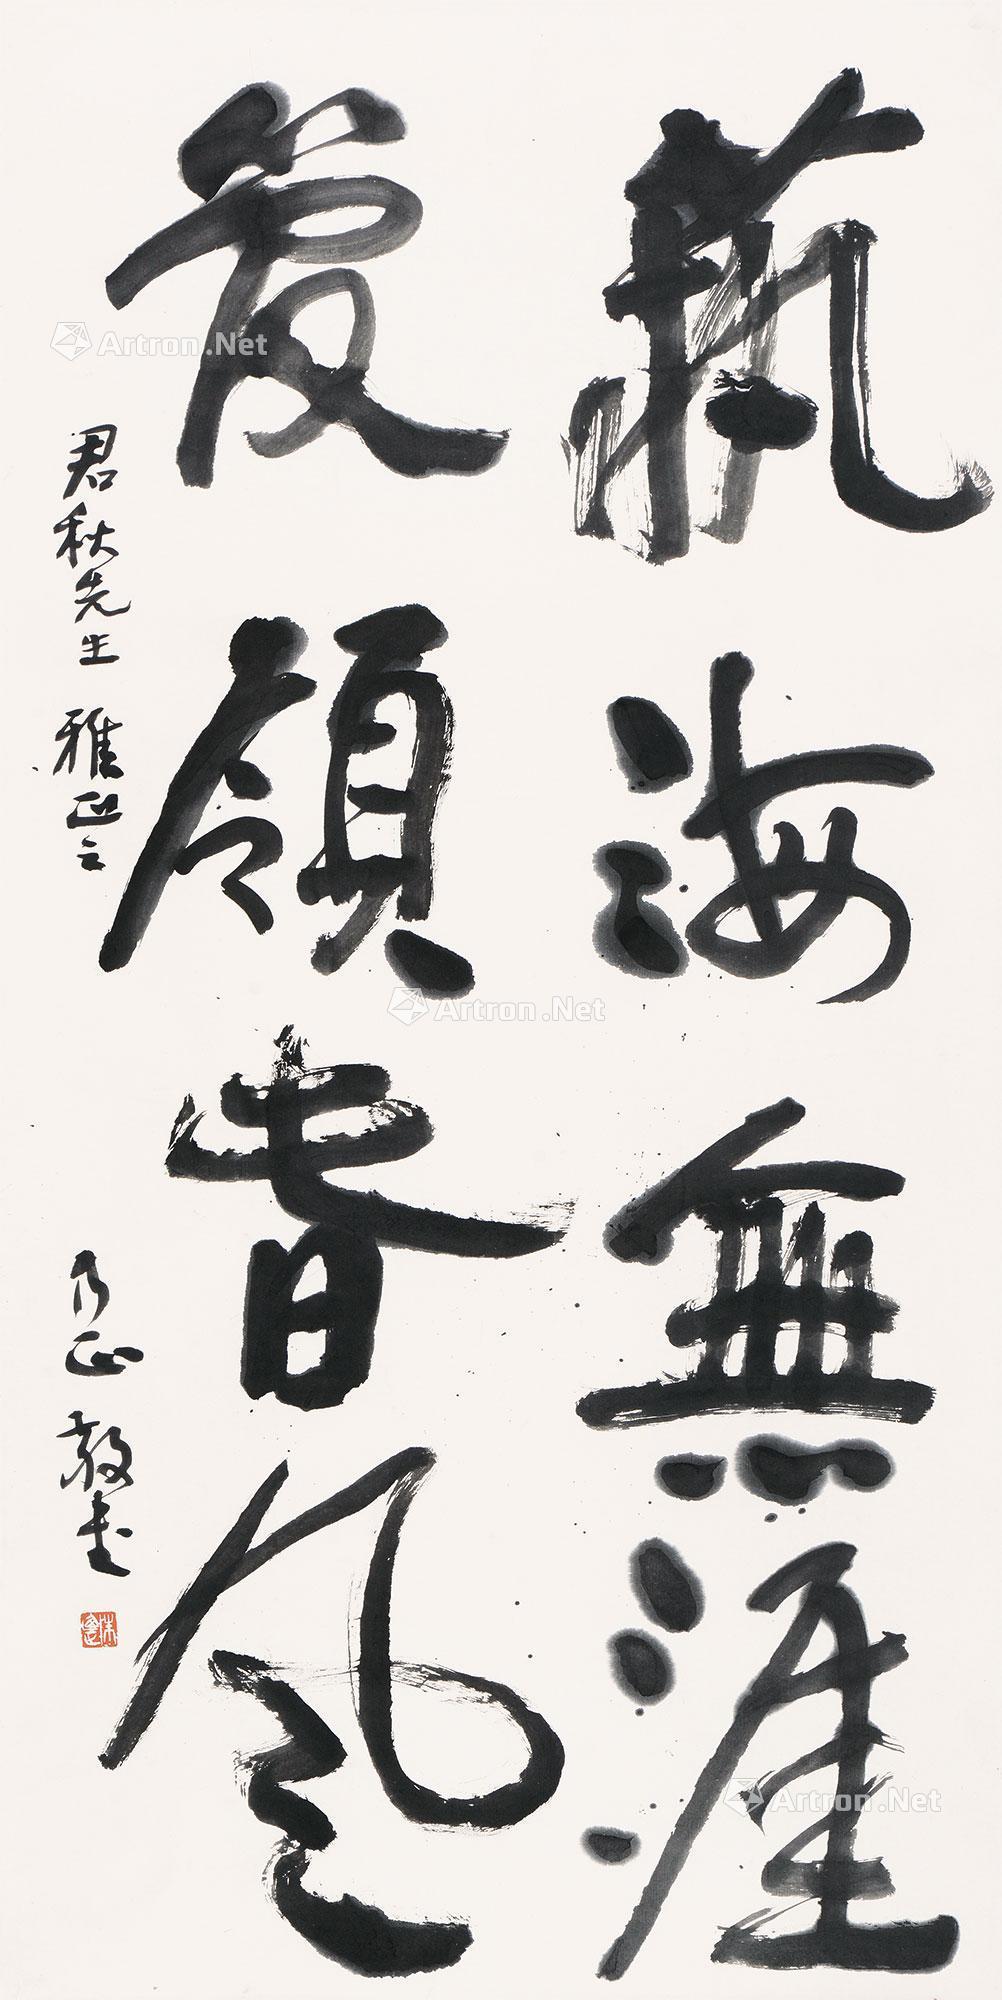 藝海無涯
爰領春風
君秋先生 雅正之 乃正 敬書
Artron.Net
Artron.Net
Artron.Net